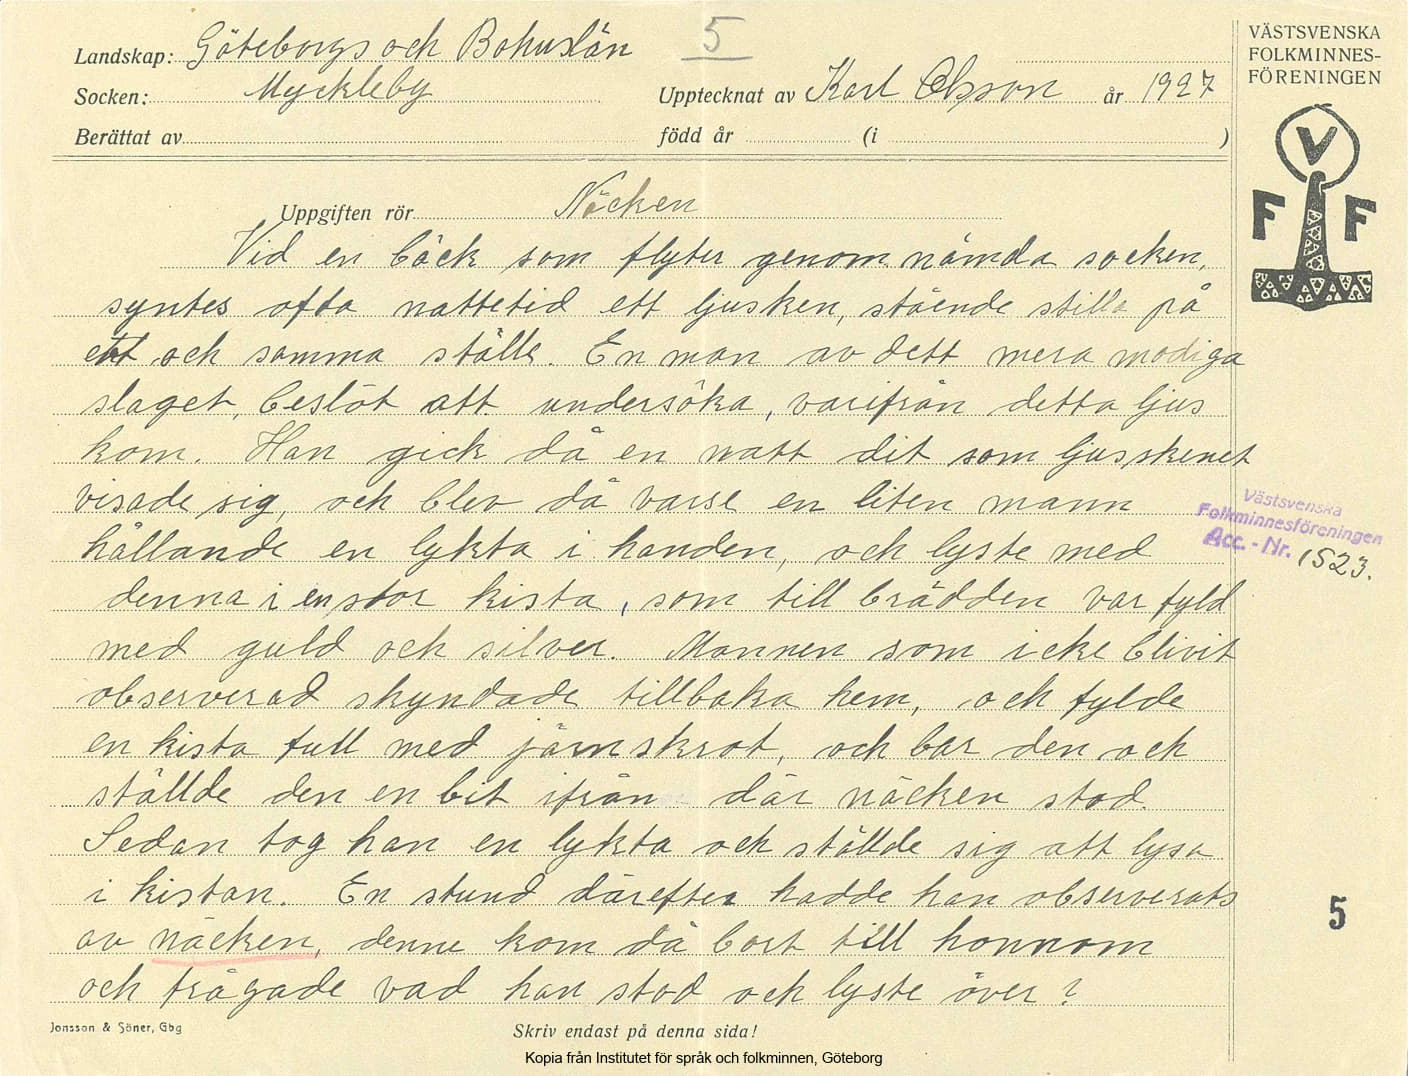 Landskap: Göteborgs och Bohuslän
5
VÄSTSVENSKA
FOLKMINNES-
FÖRENINGEN
Socken: Myckleby
Upptecknat av Karl Olsson år 1927
Berättat av
född år (i )
V
F F
Uppgiften rör Näcken
Vid en bäck som flyter genom nämda socken,
syntes ofta nattetid ett ljusken, stående stilla på
ett och samma ställe. En man av dett mera modiga
slaget, beslöt att undersöka, varifrån detta ljus
kom. Han gick då en natt dit som ljusskenet
visade sig, och blev då varse en liten mann
hållande en lykta i handen, och lyste med
denna i en stor kista, som till brädden var fyld
med guld och silver. Mannen som icke blivit
observerad skyndade tillbaka hem, och fylde
en kista full med järnskrot, och bar den och
ställde den en bit ifrån där näcken stod.
Sedan tog han en lykta och ställde sig att lysa
i kistan. En stund därefter hadde han observerats
av näcken, denne kom då bort till honnom
och frågade vad han stod och lyste över?
Västsvenska
Folkminnesföreningen
Acc.-Nr. 1523.
5
Jonsson & Söner, Gbg
Skriv endast på denna sida!
Kopia från Institutet för språk och folkminnen, Göteborg